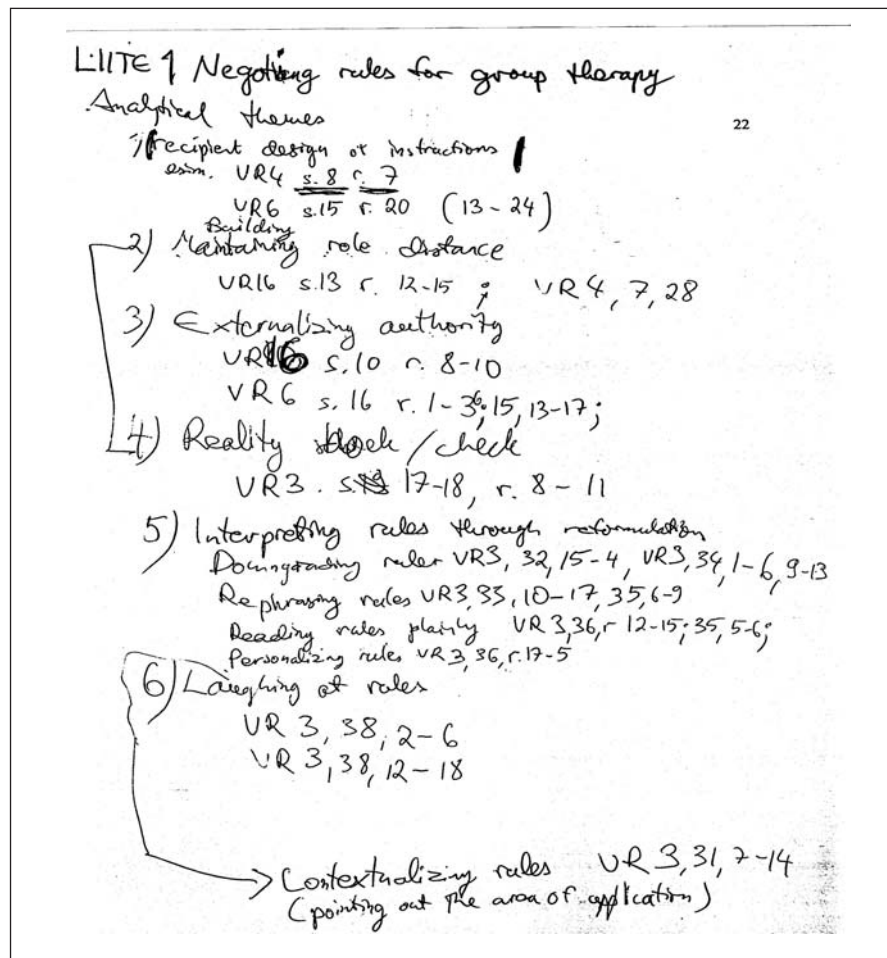 LIITE 1 Negotiing rules for group therapy
Analytical themes
22
1) recipient design of instructions
esim. VR4 s.8 r. 7
VR6 s.15 r. 20 (13-24)
Building
2) Maintaining role distance
VR16 s.13 r. 12-15 ; VR4, 7, 28
3) Externalizing authority
VR16 s.10 r. 8-10
VR6 s.16 r. 1-36; 15, 13-17;
4) Reality / check
VR3. s. 17-18, r. 8-11
5) Interpreting rules through reformulation
Downgrading rules VR3, 32, 15-4, VR3, 34, 1-6, 9-13
Rephrasing rules VR3, 33, 10-17, 35, 6-9
Reading rules plainly VR3, 36, r 12-15; 35, 5-6;
Personalizing rules VR3, 36, r. 17-5
6) Laughing at rules
VR 3, 38, 2-6
VR 3, 38, 12-18
Contextualizing rules VR 3, 31, 7-14
(pointing out the area of application)